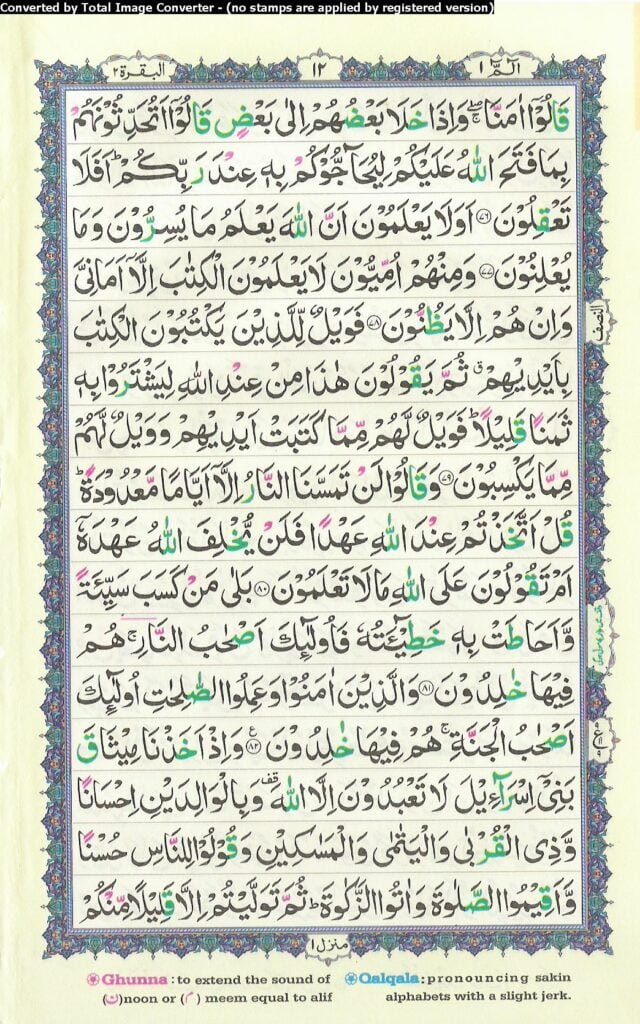 Converted by Total Image Converter - (no stamps are applied by registered version)
البقرة ٢ ١٢ الٓمّٓ ١
قَالُوْۤا اٰمَنَّا ۖۚ وَاِذَا خَلَا بَعْضُهُمْ اِلٰى بَعْضٍ قَالُوْۤا اَتُحَدِّثُوْنَهُمْ
بِمَا فَتَحَ اللّٰهُ عَلَيْكُمْ لِيُحَآجُّوْكُمْ بِهٖ عِنْدَ رَبِّكُمْ ؕ اَفَلَا
تَعْقِلُوْنَ ﴿۷۶﴾ اَوَلَا يَعْلَمُوْنَ اَنَّ اللّٰهَ يَعْلَمُ مَا يُسِرُّوْنَ وَمَا
يُعْلِنُوْنَ ﴿۷۷﴾ وَمِنْهُمْ اُمِّيُّوْنَ لَا يَعْلَمُوْنَ الْكِتٰبَ اِلَّاۤ اَمَانِىَّ
وَاِنْ هُمْ اِلَّا يَظُنُّوْنَ ﴿۷۸﴾ فَوَيْلٌ لِّلَّذِيْنَ يَكْتُبُوْنَ الْكِتٰبَ
النصف
بِاَيْدِيْهِمْ ۗ ثُمَّ يَقُوْلُوْنَ هٰذَا مِنْ عِنْدِ اللّٰهِ لِيَشْتَرُوْا بِهٖ
ثَمَنًا قَلِيْلًا ؕ فَوَيْلٌ لَّهُمْ مِّمَّا كَتَبَتْ اَيْدِيْهِمْ وَوَيْلٌ لَّهُمْ
مِّمَّا يَكْسِبُوْنَ ﴿۷۹﴾ وَقَالُوْا لَنْ تَمَسَّنَا النَّارُ اِلَّاۤ اَيَّامًا مَّعْدُوْدَةً ؕ
قُلْ اَتَّخَذْتُمْ عِنْدَ اللّٰهِ عَهْدًا فَلَنْ يُّخْلِفَ اللّٰهُ عَهْدَهٗۤ
اَمْ تَقُوْلُوْنَ عَلَى اللّٰهِ مَا لَا تَعْلَمُوْنَ ﴿۸۰﴾ بَلٰى مَنْ كَسَبَ سَيِّئَةً
وَّاَحَاطَتْ بِهٖ خَطِيْٓئَتُهٗ فَاُولٰٓئِكَ اَصْحٰبُ النَّارِ ۚ هُمْ
فِيْهَا خٰلِدُوْنَ ﴿۸۱﴾ وَالَّذِيْنَ اٰمَنُوْا وَعَمِلُوا الصّٰلِحٰتِ اُولٰٓئِكَ
اَصْحٰبُ الْجَنَّةِ ۚ هُمْ فِيْهَا خٰلِدُوْنَ ﴿۸۲﴾ وَاِذْ اَخَذْنَا مِيْثَاقَ
بَنِىْۤ اِسْرَآءِيْلَ لَا تَعْبُدُوْنَ اِلَّا اللّٰهَ وَبِالْوَالِدَيْنِ اِحْسَانًا
وَّذِى الْقُرْبٰى وَالْيَتٰمٰى وَالْمَسٰكِيْنِ وَقُوْلُوْا لِلنَّاسِ حُسْنًا
وَّاَقِيْمُوا الصَّلٰوةَ وَاٰتُوا الزَّكٰوةَ ؕ ثُمَّ تَوَلَّيْتُمْ اِلَّا قَلِيْلًا مِّنْكُمْ
منزل ١
Ghunna: to extend the sound of (ن)noon or (م) meem equal to alif
Qalqala: pronouncing sakin alphabets with a slight jerk.